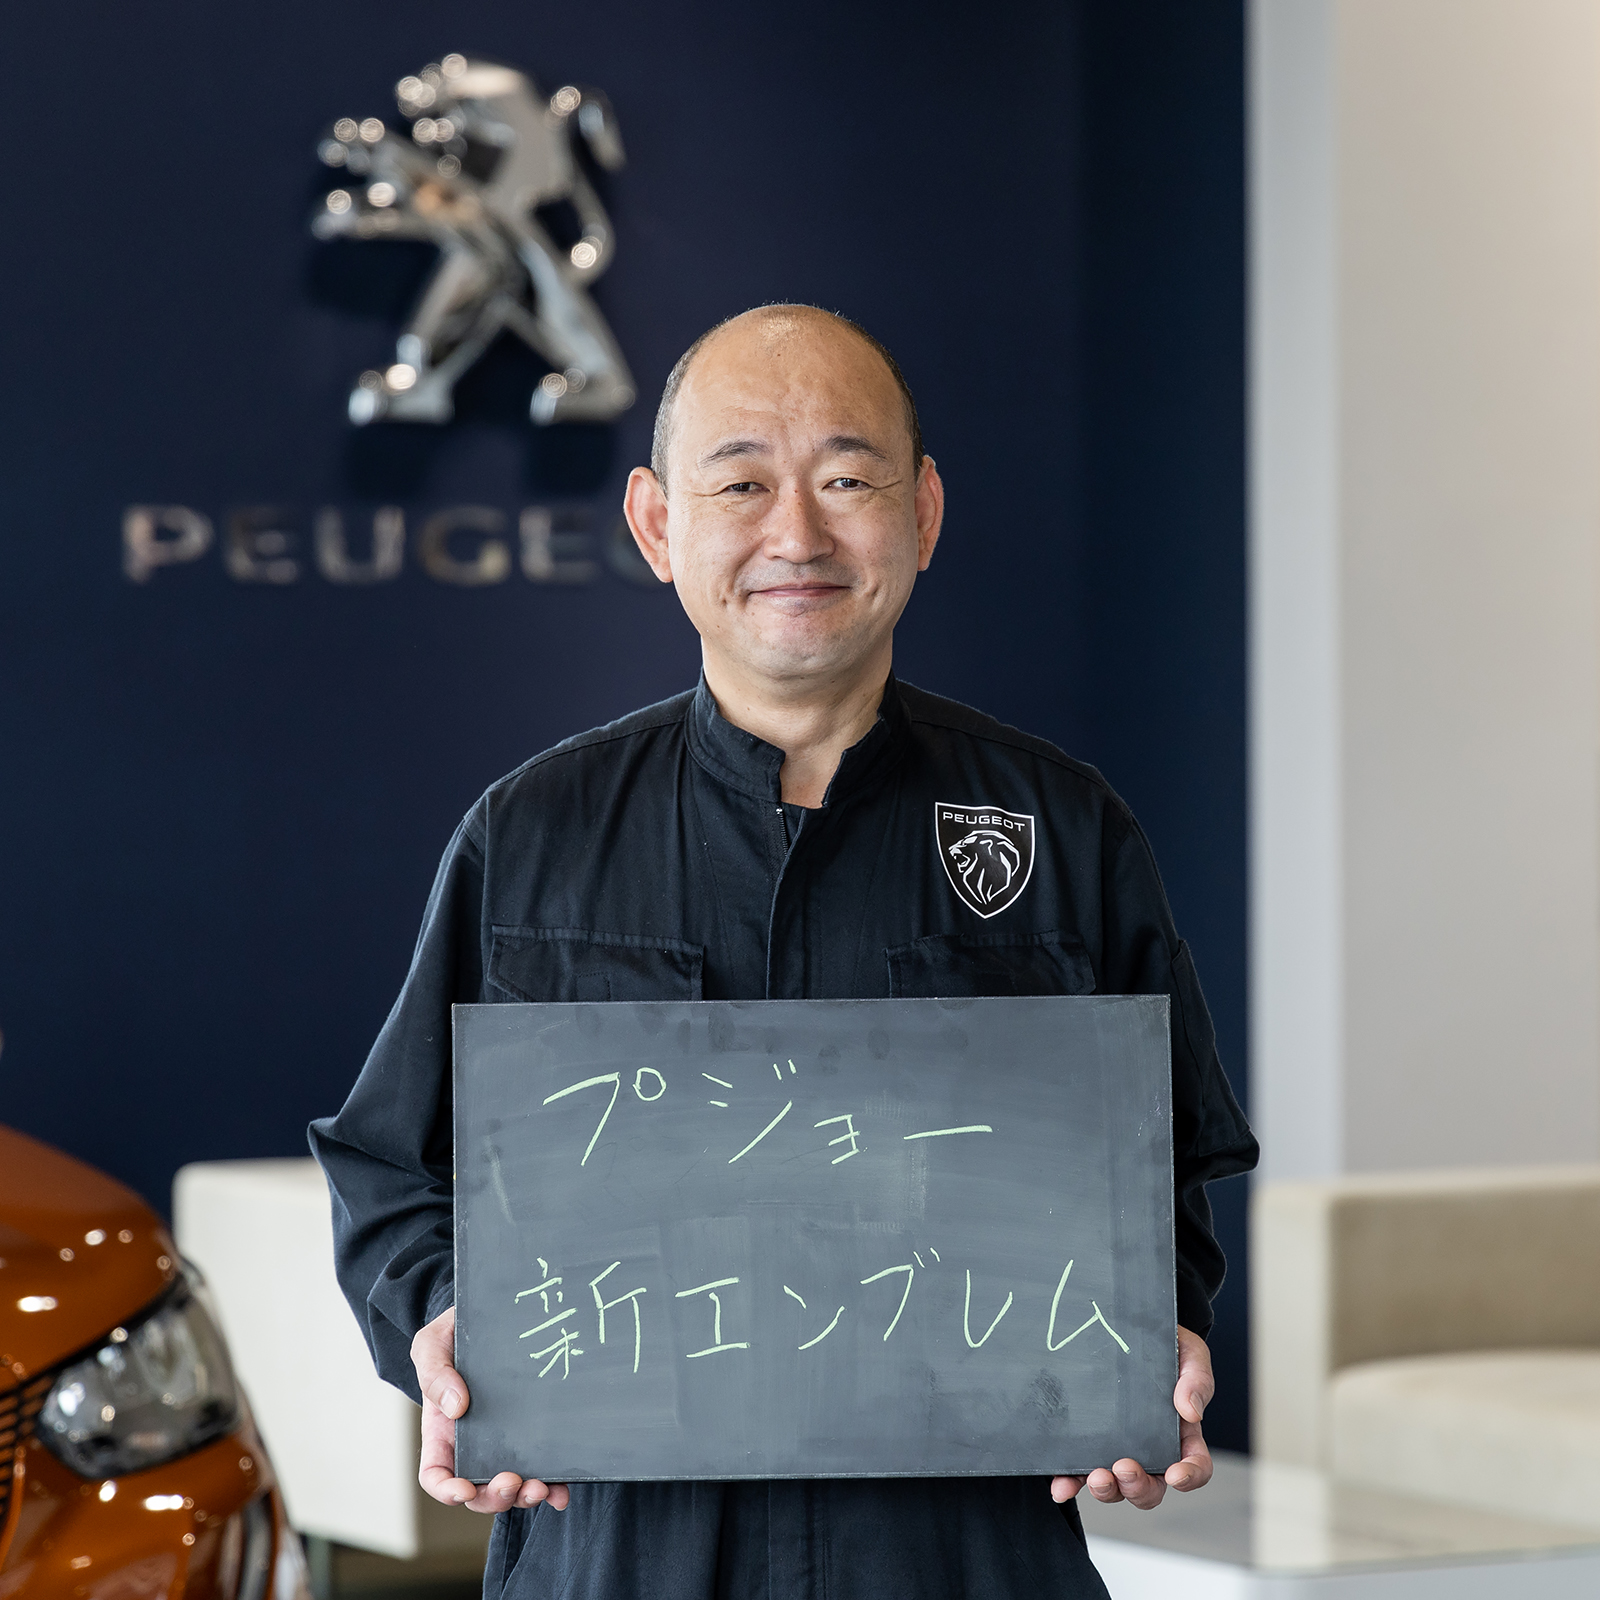 PEUGEO
PEUGEOT
プジョー
新エンブレム